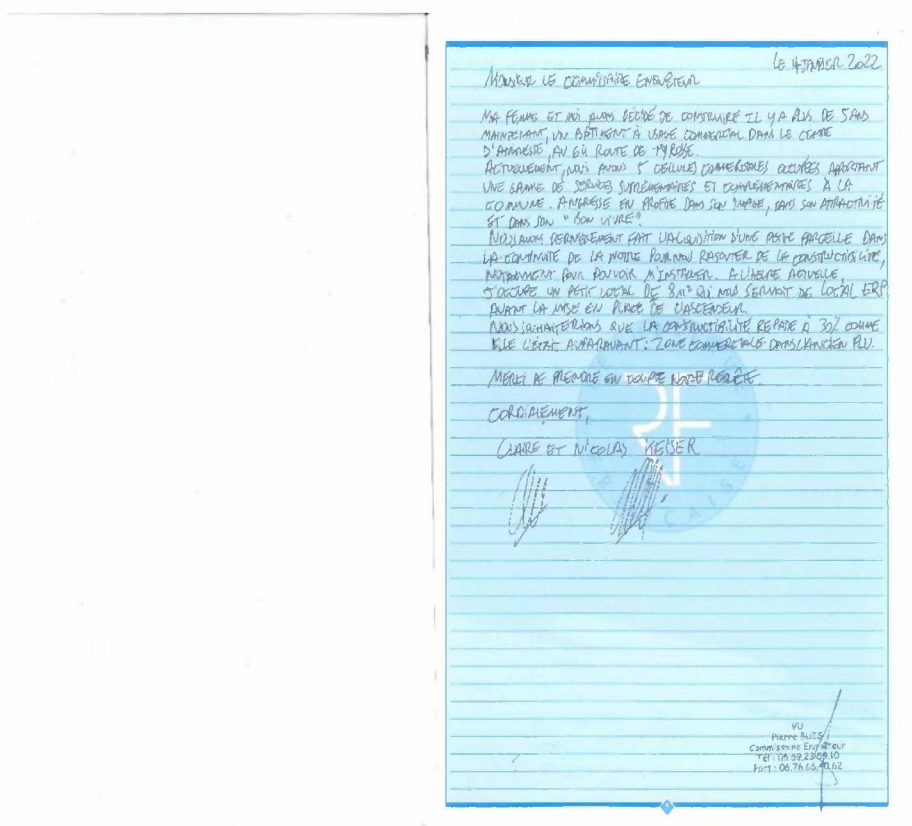 LE 14 JANVIER 2022
MONSIEUR LE COMMISSAIRE ENQUÊTEUR
MA FEMME ET MOI AVONS DÉCIDÉ DE CONSTRUIRE IL Y A PLUS DE 5 ANS
MAINTENANT, UN BÂTIMENT À USAGE COMMERCIAL DANS LE CENTRE
D'ANGRESSE, AU 64 ROUTE DE TYROSSE.
ACTUELLEMENT, NOUS AVONS 5 CELLULES COMMERCIALES OCCUPÉES APPORTANT
UNE GAMME DE SERVICES SUPPLÉMENTAIRES ET COMPLÉMENTAIRES À LA
COMMUNE. ANGRESSE EN PROFITE DANS SON IMAGE, DANS SON ATTRACTIVITÉ
ET DANS SON "BON VIVRE".
NOUS AVONS DERNIÈREMENT FAIT L'ACQUISITION D'UNE PETITE PARCELLE DANS
LA CONTINUITÉ DE LA NOTRE POUR NOUS RAJOUTER DE LA CONSTRUCTIBILITÉ,
NOTAMMENT POUR POUVOIR M'INSTALLER. A L'HEURE ACTUELLE,
J'OCCUPE UN PETIT LOCAL DE 8 M² QUI NOUS SERVAIT DE LOCAL ERP
AVANT LA MISE EN PLACE DE L'ASCENSEUR.
NOUS SOUHAITERIONS QUE LA CONSTRUCTIBILITÉ REPASSE À 30% COMME
ELLE L'ÉTAIT AUPARAVANT : ZONE COMMERCIALE DANS L'ANCIEN PLU.
MERCI DE PRENDRE EN COMPTE NOTRE REQUÊTE.
CORDIALEMENT,
CLAIRE ET NICOLAS KEISER
RF
VU
Pierre BUIS
Commissaire Enquêteur
Tél :
Port : 06.76.65.